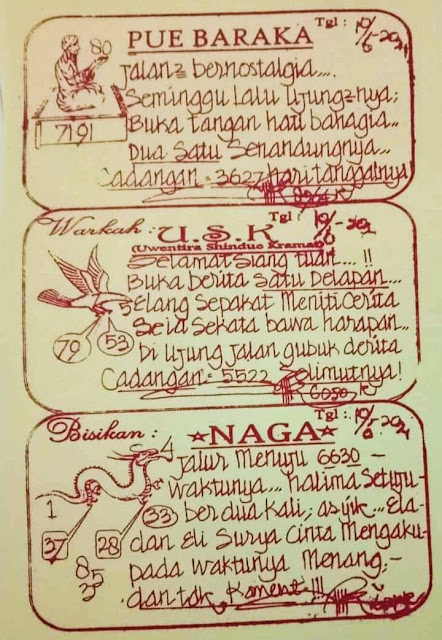 Tgl : 10/6-2021
PUE BARAKA
80
7191
Jalan2 bernostalgia....
Seminggu lalu ujung2nya;
Buka tangan hati bahagia...
Dua Satu Senandungnya...
Cadangan = 3627 hari tanggalnya!
Warkah :
Tgl : 10/6-2021
U.S.K
(Uwentira Shinduo Kramat)
Selamat Siang tuan.... !!
Buka berita Satu Delapan...
Elang Sepakat Meniti Cerita
Seia Sekata bawa harapan...
Di Ujung Jalan gubuk derita
79
53
Cadangan = 5522 Solimutnya!
6050
Bisikan :
Tgl : 10/6-2021
★NAGA★
Jalur Menuju 6630 -
Waktunya... halima Setuju-
ber dua kali; asyik... Ela-
dan Eli Surya Cinta Mengaku-
pada waktunya Menang,-
dan tdk, Koment !!!
1
37
28
33
85
35